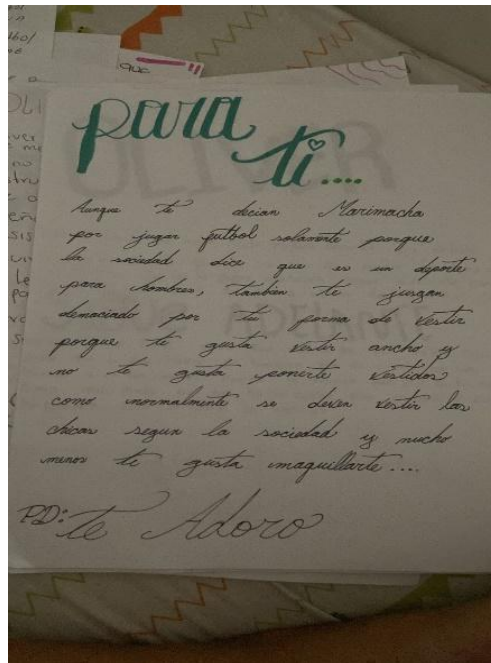 que
para
ti....
Aunque te decian Marimacha
por jugar futbol solamente porque
la sociedad dice que es un deporte
para hombres, tambien te juzgan
demaciado por tu forma de vestir
porque te gusta vestir ancho y
no te gusta ponerte vestidos
como normalmente se deven vestir las
chicas segun la sociedad y mucho
menos te gusta maquillarte....
PD: te Adoro